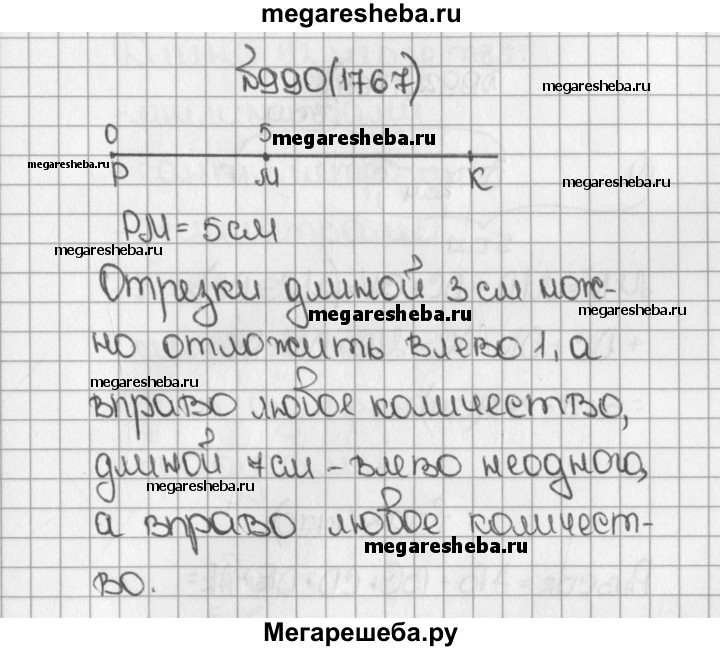 megaresheba.ru
№990(1767)
megaresheba.ru
0 5
megaresheba.ru
megaresheba.ru
P M K
megaresheba.ru
PM = 5 см
megaresheba.ru
Отрезки длиной 3 см мож-
megaresheba.ru
но отложить влево 1, а
megaresheba.ru
вправо любое количество,
длиной 7 см - влево неодного,
megaresheba.ru
а вправо любое количест-
megaresheba.ru
во.
Мегарешеба.ру